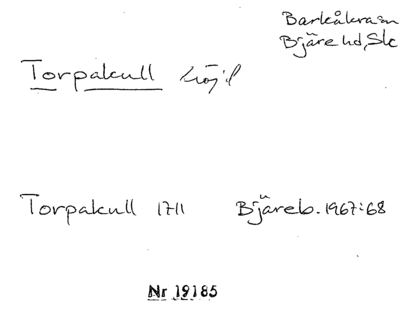 Barkåkra sn
Bjäre hd, Sk
Torpakull höjd
Torpakull 1711 Bjäreb. 1967:68
Nr 19185